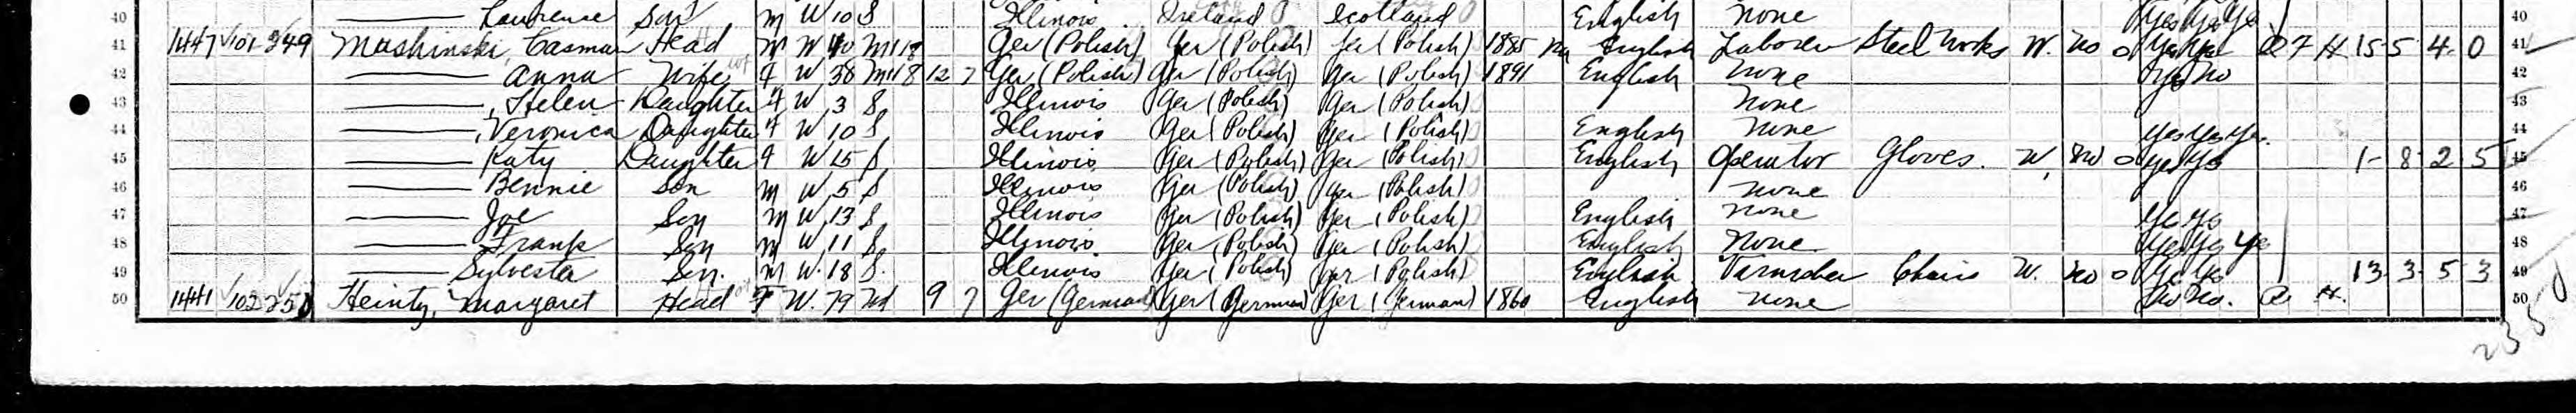 40 Lawrence Son M W 10 S Illinois Ireland Scotland English None Yes Yes Yes 40
41 1447 101 249 Mushinski, Casman Head M W 40 M1 18 Ger (Polish) Ger (Polish) Ger (Polish) 1885 Na English Laborer Steel Works W. No 0 Yes Yes O F H 15-5 4 0 41
42 Anna Wife F W 38 M1 18 12 7 Ger (Polish) Ger (Polish) Ger (Polish) 1891 English None Yes No 42
43 , Helen Daughter F W 3 S Illinois Ger (Polish) Ger (Polish) None 43
44 , Veronica Daughter F W 10 S Illinois Ger (Polish) Ger (Polish) English None Yes Yes Yes. 44
45 Katy Daughter F W 15 S Illinois Ger (Polish) Ger (Polish) English Operator Gloves. W. No 0 Yes Yes 1-8 2 5 45
46 Bennie Son M W 5 S Illinois Ger (Polish) Ger (Polish) None 46
47 Joe Son M W 13 S Illinois Ger (Polish) Ger (Polish) English None Yes Yes 47
48 Frank Son M W 11 S Illinois Ger (Polish) Ger (Polish) English None Yes Yes Yes 48
49 Sylvester Son. M W. 18 S. Illinois Ger (Polish) Ger (Polish) English Varnisher Chairs W. No 0 Yes Yes 13-3 5 3 49
50 1441 102 250 Heintz, Margaret Head F W. 79 Wd 9 7 Ger (German) Ger (German) Ger (German) 1860 English None No No. O H. 50
235